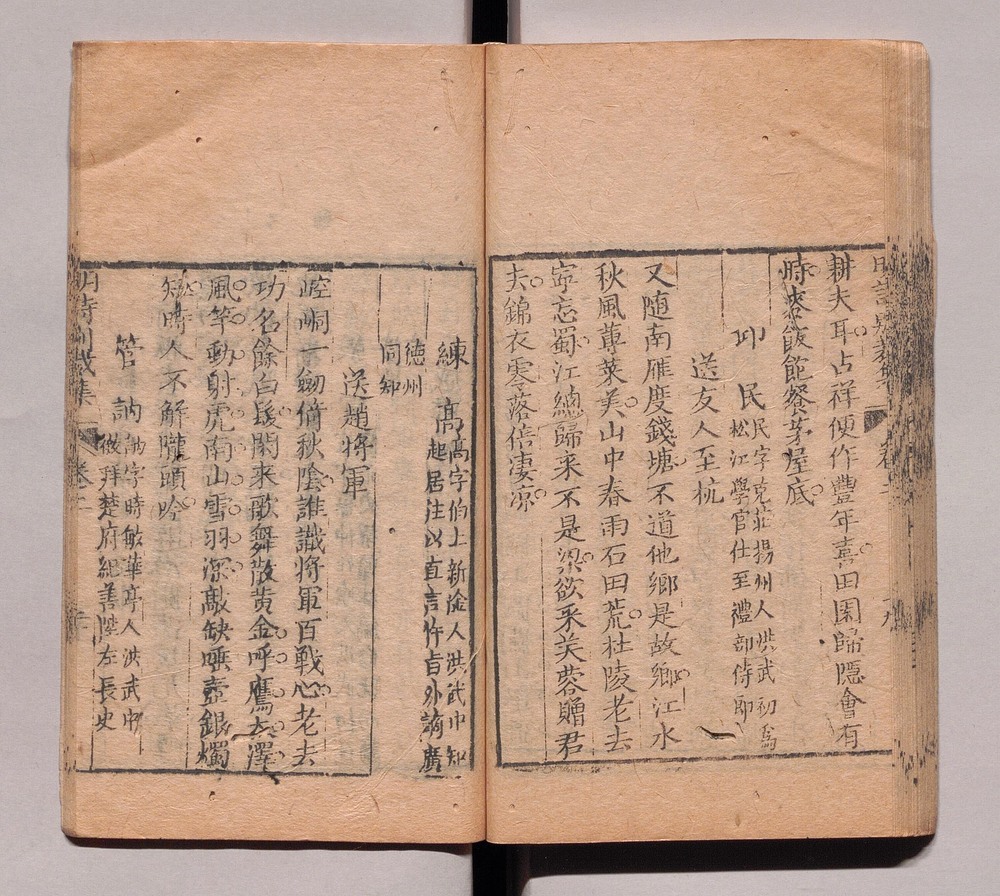 耕夫耳占祥便作豐年喜田園歸隱會有
時麥飯飽餐茅屋底
卭 民 民字克莊揚州人洪武初爲
松江學官仕至禮部侍郎
送友人至杭
又隨南雁度錢塘不道他鄉是故鄉江水
秋風蓴菜美山中春雨石田荒杜陵老去
寧忘蜀江總歸來不是梁欲采芙蓉贈君
去錦衣零落倍凄凉
練 高 高字伯上新淦人洪武中知
起居注以直言忤旨外謫廣
德州
同知
送趙將軍
崆峒 劒倚秋陰誰識將軍百戰心老去
功名餘白髮閑來歌舞散黄金呼鷹 澤
風竿動射虎南山雪羽深敲缺唾壺銀燭
短時人不解隴頭吟
管 訥 訥字時敏華亭人洪武中
徵拜楚府紀善陞左長史
明詩别裁集 卷二